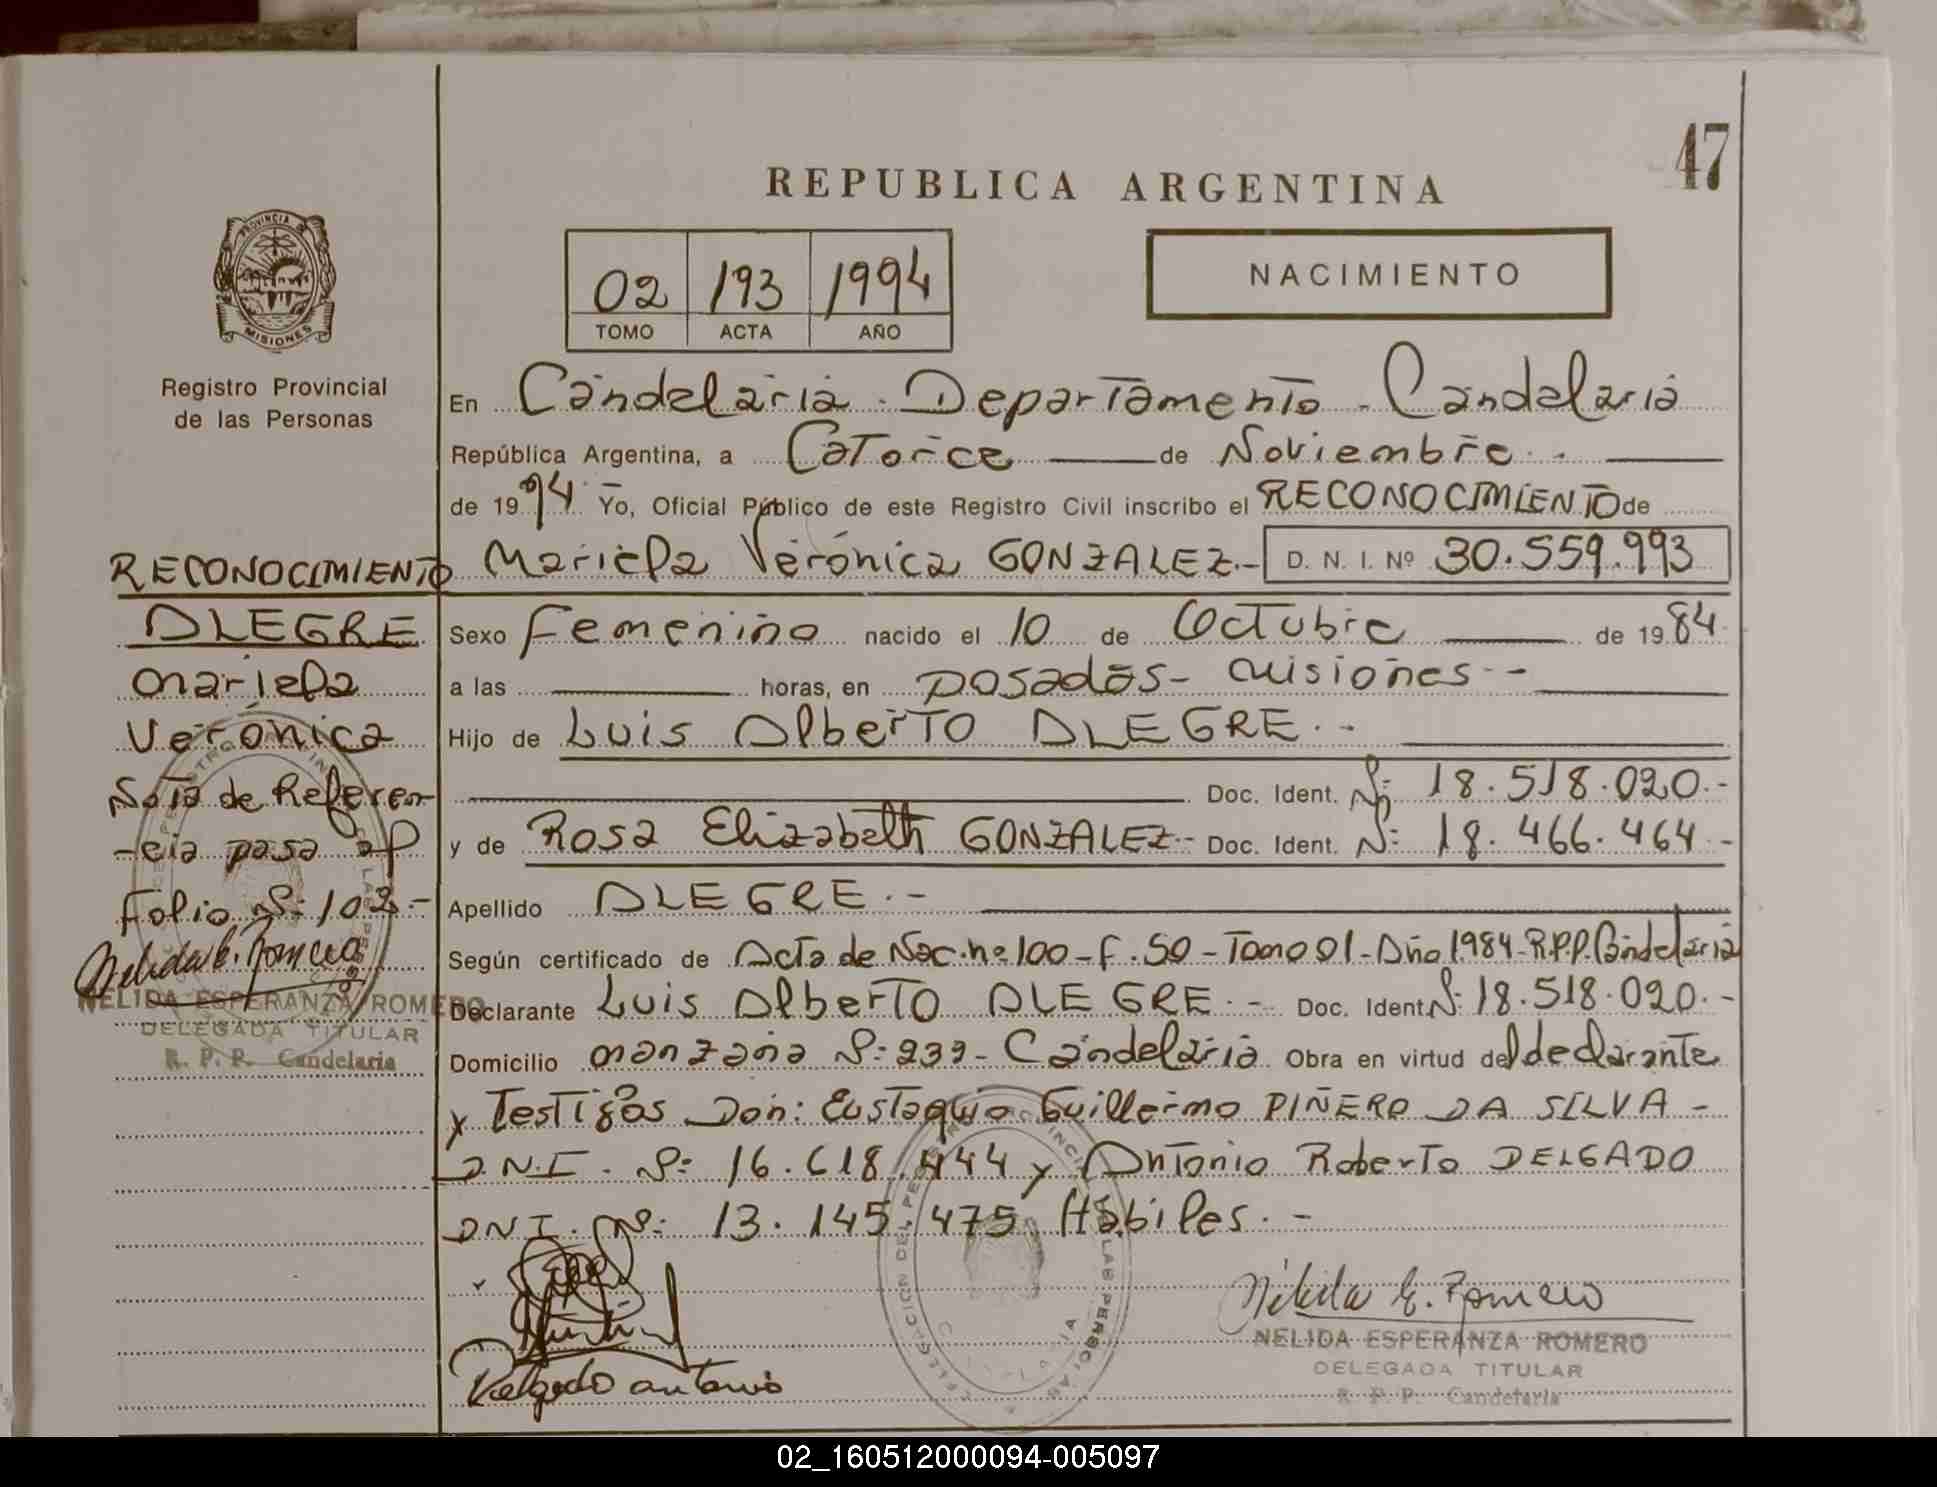 47
REPUBLICA ARGENTINA
PROVINCIA DE
MISIONES
02 193 1994
TOMO ACTA AÑO
NACIMIENTO
Registro Provincial
de las Personas
En Candelaria - Departamento - Candelaria
República Argentina, a Catorce de Noviembre.-
de 1994 Yo, Oficial Público de este Registro Civil inscribo el RECONOCIMIENTO de
Mariela Verónica GONZALEZ.- D. N. I. Nº 30.559.993
Sexo Femenino nacido el 10 de Octubre de 1984
a las horas, en posadas - misiones --
Hijo de Luis Alberto ALEGRE.-
Doc. Ident. Nº 18.518.020.-
y de Rosa Elizabeth GONZALEZ.- Doc. Ident. Nº 18.466.464.-
Apellido ALEGRE.-
Según certificado de Acta de Nac. nº 100 - F. 50 - Tomo 01 - Año 1984 - R.P.P. Candelaria
Declarante Luis Alberto ALEGRE.- Doc. Ident. Nº 18.518.020.-
Domicilio manzana Nº 232 - Candelaria Obra en virtud del declarante
y Testigos Don: Eustaquio Guillermo PIÑERO DA SILVA -
D.N.I. Nº 16.618.444 y Antonio Roberto DELGADO
DNI. Nº 13.145.475 Hábiles.-
Delgado antonio
Nélida E. Romero
NELIDA ESPERANZA ROMERO
DELEGADA TITULAR
R. P. P. Candelaria
RECONOCIMIENTO
ALEGRE
Mariela
Verónica
Nota de Referen-
-cia pasa al
Folio Nº 102.-
Nelida E. Romero
NELIDA ESPERANZA ROMERO
DELEGADA TITULAR
R. P. P. Candelaria
02_160512000094-005097